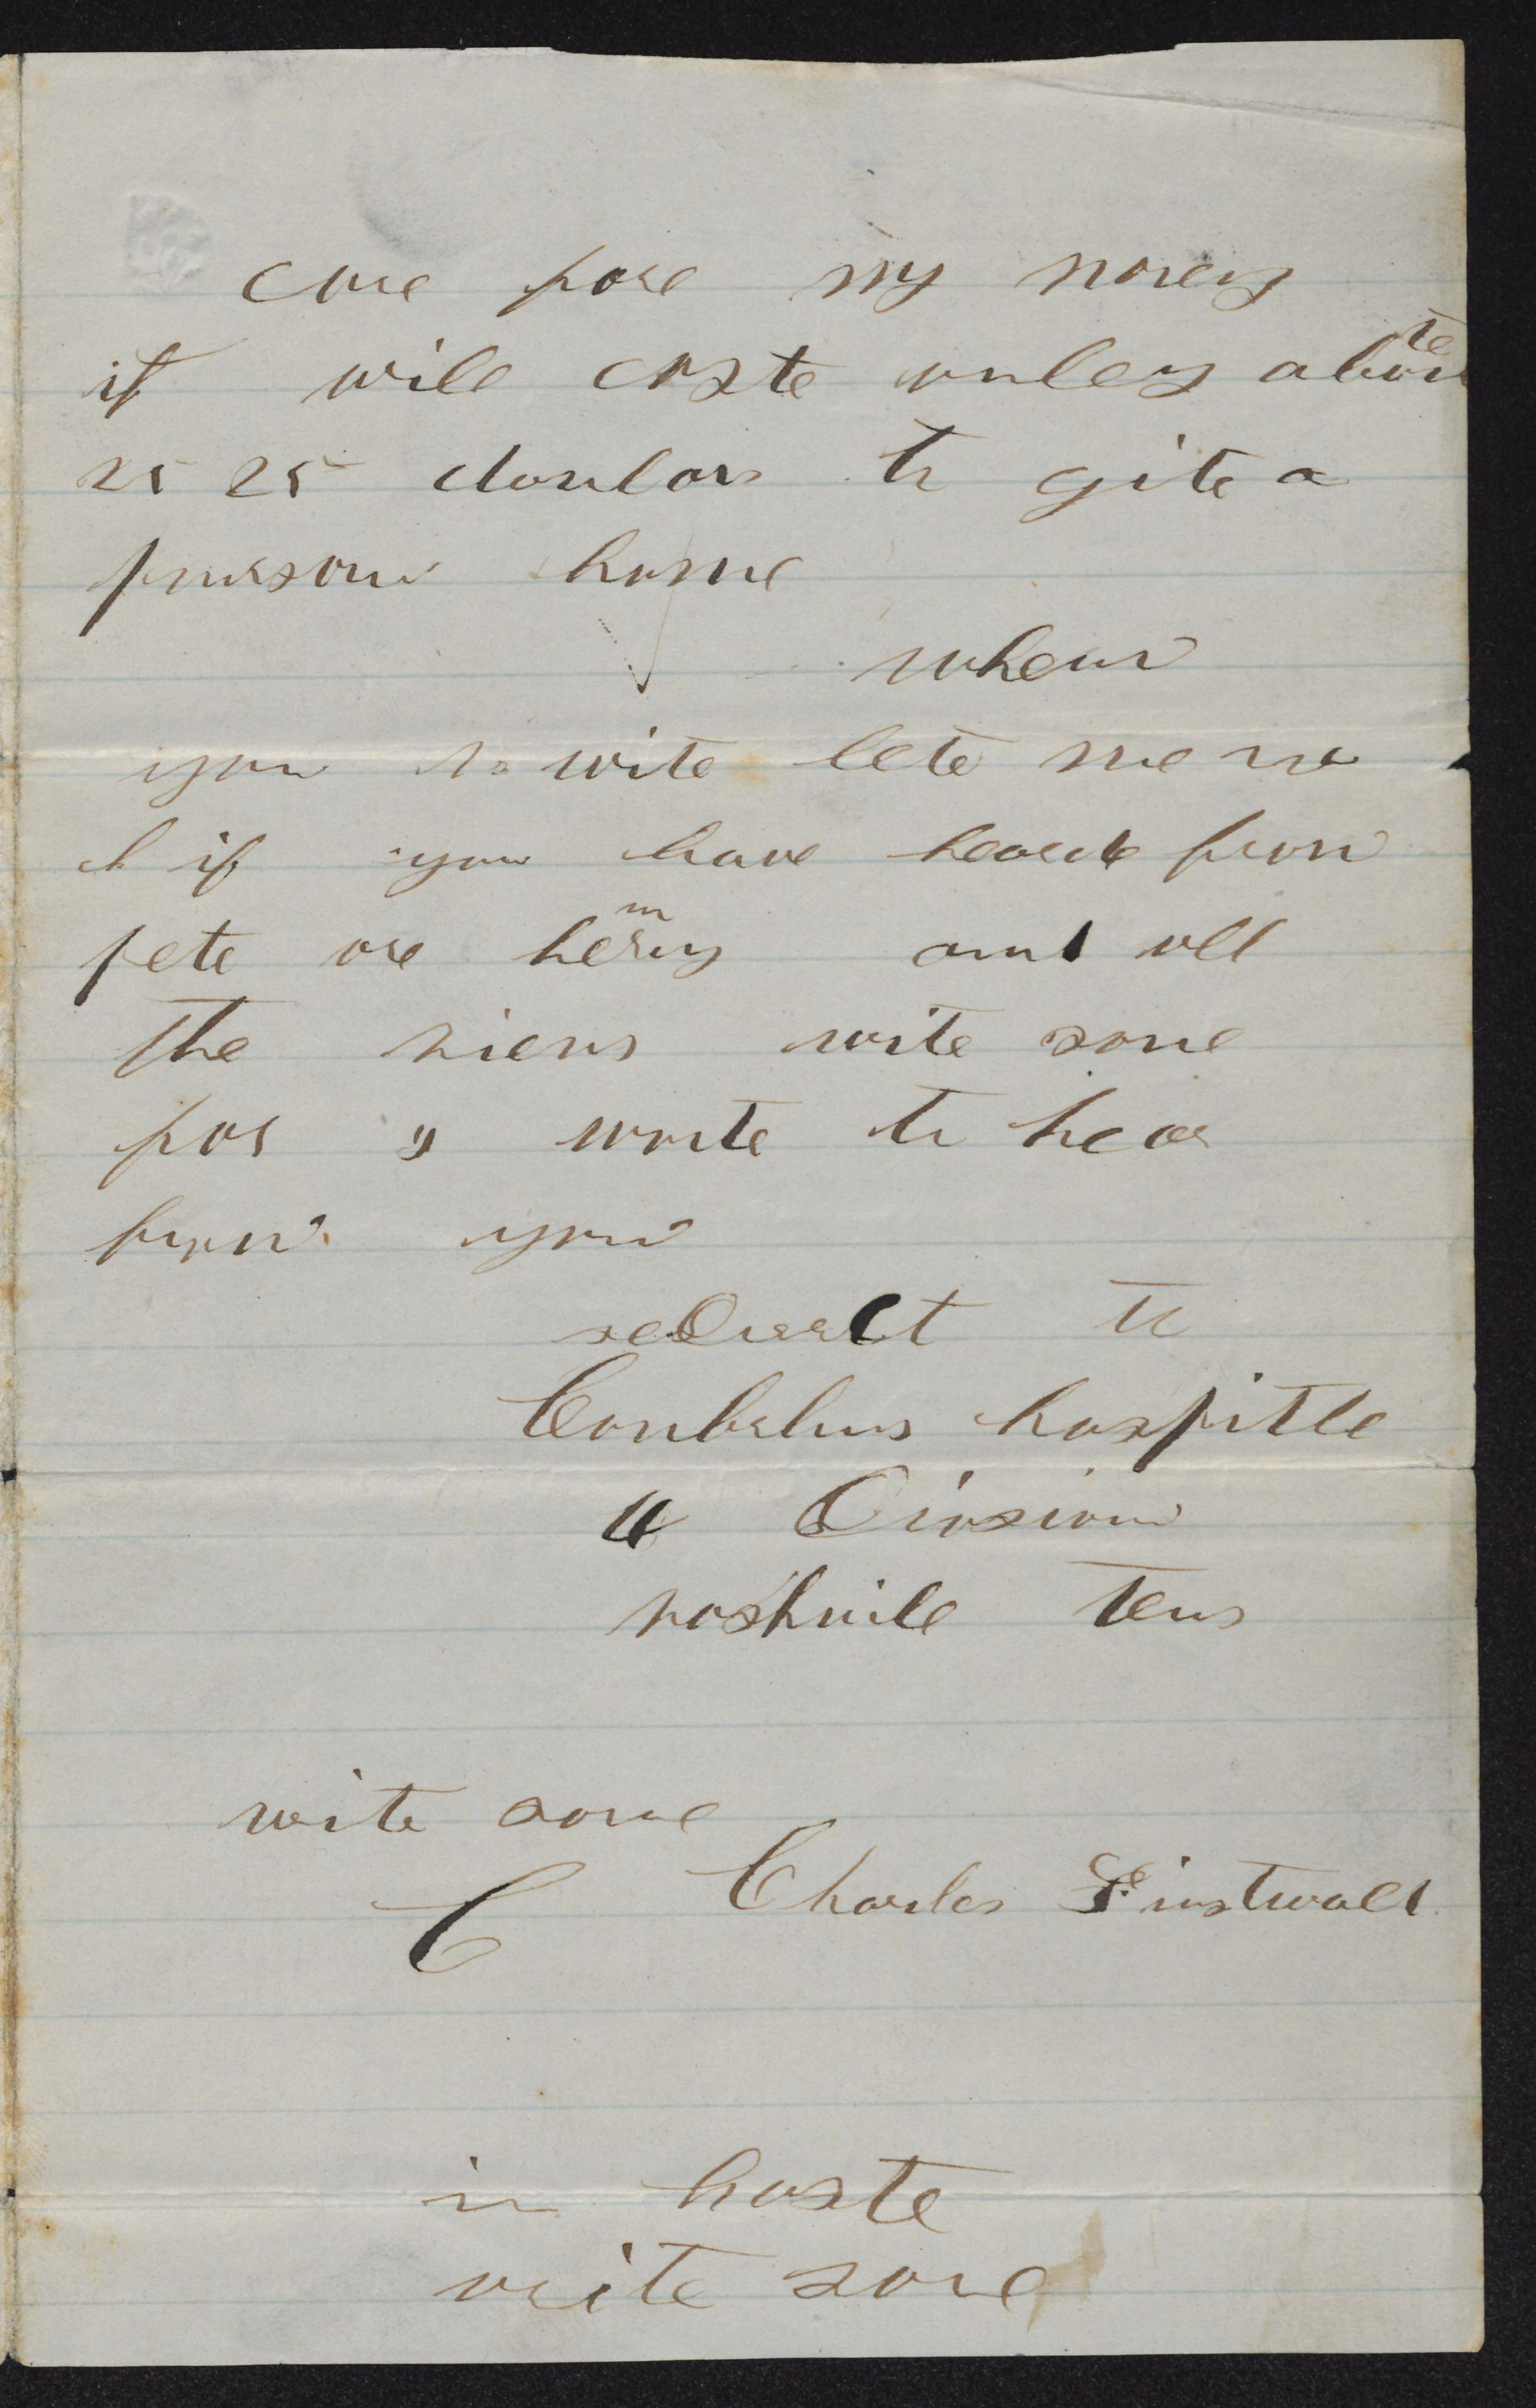 care fore my money
it will coste onley aboute
25 25 doulars to gite a
purson home
when
you write lete me no
if you have hearde from
pete ore henry and oll
the niews wite sone
for i wonte to hear
from you
to
hospitle
Division
nashvile tens
write sone
C Charles
in haste
write sone